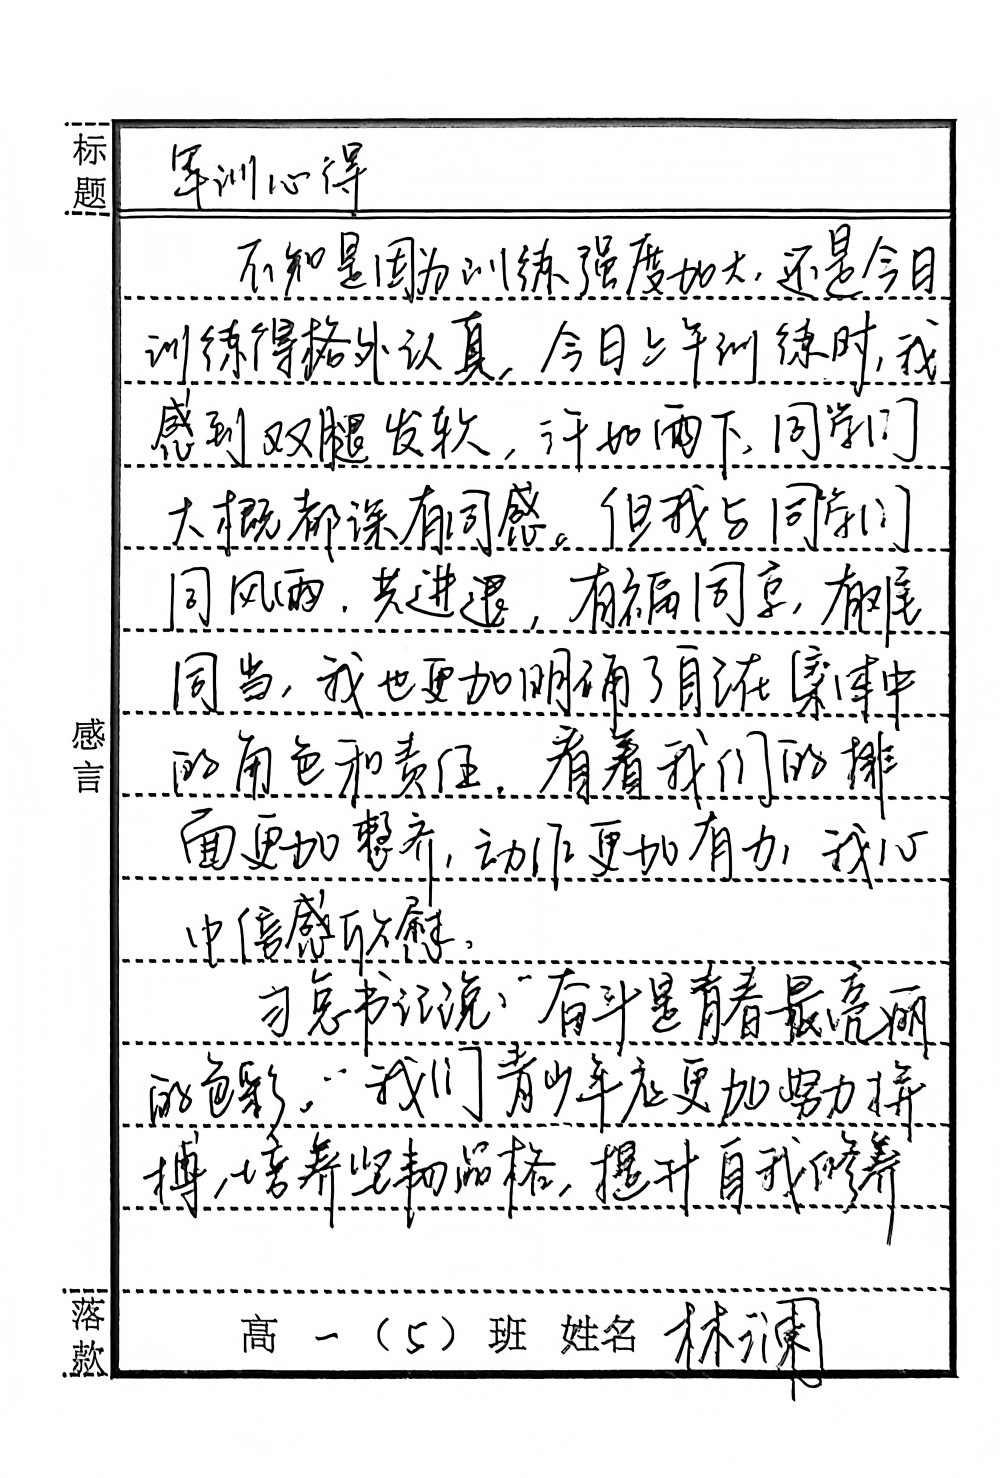 标题
军训心得
不知是因为训练强度加大，还是今日
训练得格外认真，今日上午训练时，我
感到双腿发软，汗如雨下，同学们
大概都深有同感。但我与同学们
同风雨，共进退，有福同享，有难
同当，我也更加明确了自己在集体中
感言
的角色和责任。看着我们的排
面更加整齐，动作更加有力，我心
中倍感欣慰。
习总书记说：“奋斗是青春最亮丽
的色彩。”我们青少年应更加努力拼
搏，培养坚韧品格，提升自我修养
落款
高 一（5）班 姓名 林澜